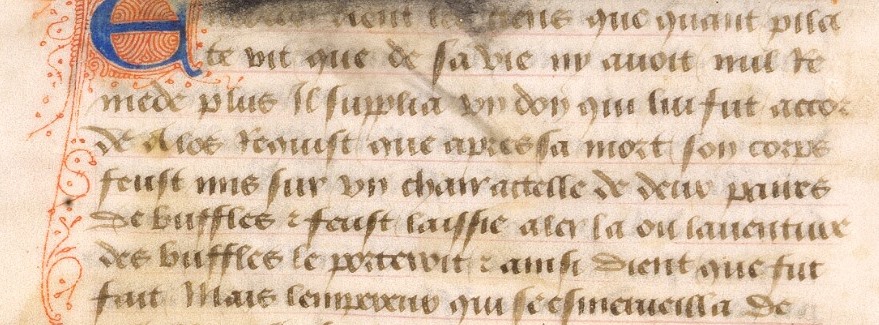 E dient les que quant pila
te vit que de sa vie ny avoit nul Re
mede plus Il supplia vn don qui lui fut accor
de Alos Requist que apres sa mort son corps
feust mis sur vn chair attelle de deux paires
de buffles & feust laissie aler la ou lauenture
des buffles le porteroit & ainsi dient que fut
fait Mais lempereur qui se esmerueilla de